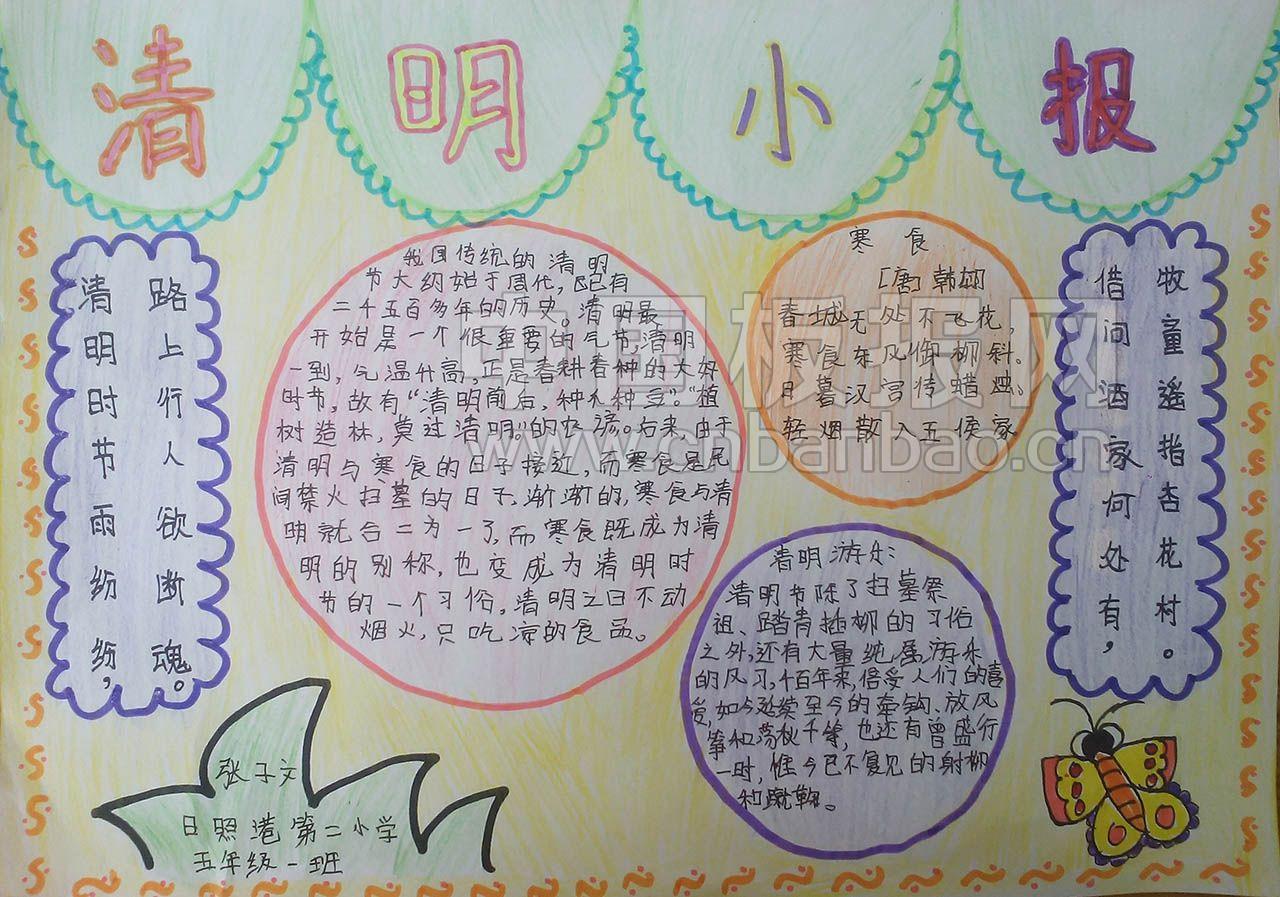 清明小报
清明时节雨纷纷，
路上行人欲断魂。
我国传统的清明
节大约始于周代，已有
二千五百多年的历史。清明最
开始是一个很重要的气节清明
一到，气温升高，正是春耕春种的大好
时节，故有“清明前后，种瓜种豆”。“植
树造林，莫过清明。”的农谚。后来，由于
清明与寒食的日子接近，而寒食是民
间禁火扫墓的日子，渐渐的，寒食与清
明就合二为一了，而寒食既成为清
明的别称，也变成为清明时
节的一个习俗，清明之日不动
烟火，只吃凉的食品。
寒食
[唐]韩翃
春城无处不飞花，
寒食东风御柳斜。
日暮汉宫传蜡烛。
轻烟散入五侯家
清明游乐：
清明节除了扫墓祭
祖、踏青插柳的习俗
之外，还有大量纯属游乐
的风习，千百年来，倍受人们的喜
爱，如今延续至今的牵钩、放风
筝和荡秋千等，也还有曾盛行
一时，惟今已不复见的射柳
和蹴鞠。
借问酒家何处有，
牧童遥指杏花村。
张子文
日照港第二小学
五年级一班
中国板报网
www.cnbanbao.cn